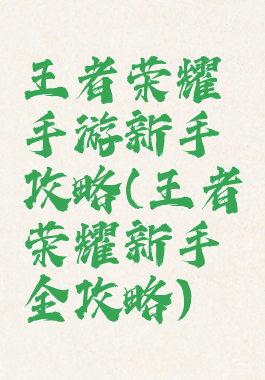 王者荣耀
手游新手
攻略(王者
荣耀新手
全攻略)